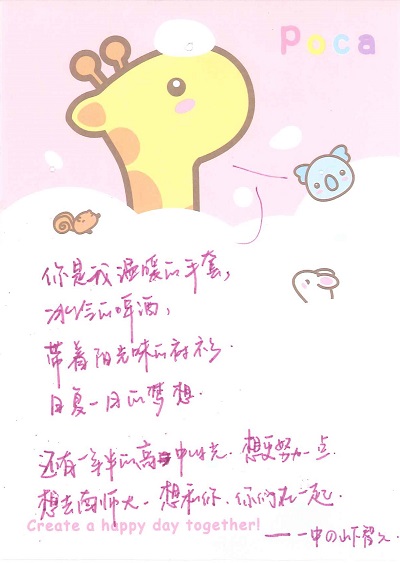 Poca
你是我温暖的手套，
冰冷的啤酒，
带着阳光味的衬衫．
日复一日的梦想．
还有一年半的高中时光．想更努力一点．
想去西师大．想和你．你们在一起．
Create a happy day together!
——一中の山下智久